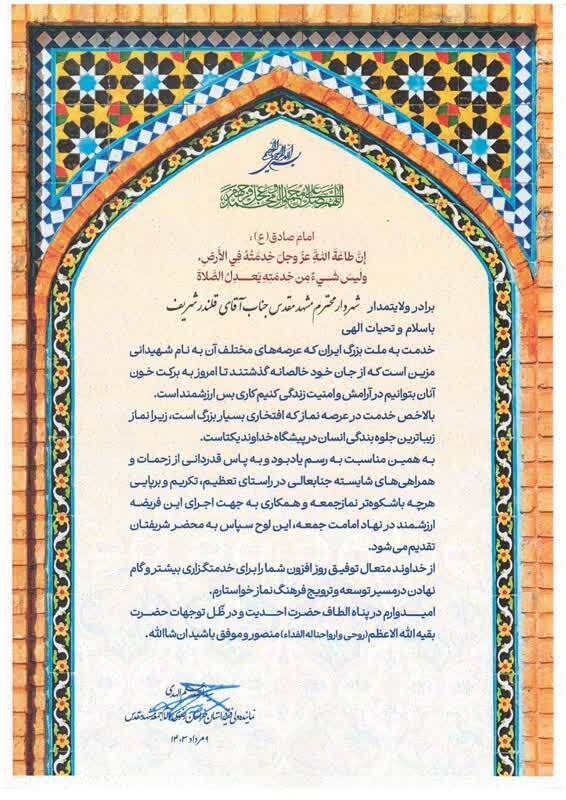 بسم الله الرحمن الرحیم
اللهم صل علی محمد وآل محمد وعجل فرجهم
امام صادق(ع):
إنّ طاعَةَ اللهِ عزّ وجلّ خِدمَتُهُ فِي الأَرضِ،
ولَيسَ شَيءٌ مِن خِدمَتِهِ يَعدِلُ الصَّلاةَ
برادر ولایتمدار شهردار محترم مشهد مقدس جناب آقای قلندر شریف
باسلام و تحیات الهی
خدمت به ملت بزرگ ایران که عرصه‌های مختلف آن به نام شهیدانی
مزین است که از جان خود خالصانه گذشتند تا امروز به برکت خون
آنان بتوانیم در آرامش و امنیت زندگی کنیم کاری بس ارزشمند است.
بالاخص خدمت در عرصه نماز که افتخاری بسیار بزرگ است، زیرا نماز
زیباترین جلوه بندگی انسان در پیشگاه خداوند یکتاست.
به همین مناسبت به رسم یادبود و به پاس قدردانی از زحمات و
همراهی‌های شایسته جنابعالی در راستای تعظیم، تکریم و برپایی
هرچه باشکوه‌تر نماز جمعه و همکاری به جهت اجرای این فریضه
ارزشمند در نهاد امامت جمعه، این لوح سپاس به محضر شریفتان
تقدیم می‌شود.
از خداوند متعال توفیق روز افزون شما را برای خدمتگزاری بیشتر و گام
نهادن در مسیر توسعه و ترویج فرهنگ نماز خواستارم.
امیدوارم در پناه الطاف حضرت احدیت و در ظّل توجهات حضرت
بقیه الله الاعظم (روحی و ارواحناله الفداء) منصور و موفق باشید ان‌شاالله.
نماینده ولی فقیه در استان خراسان رضوی و امام جمعه مشهد مقدس
۹ مرداد ۱۴۰۳